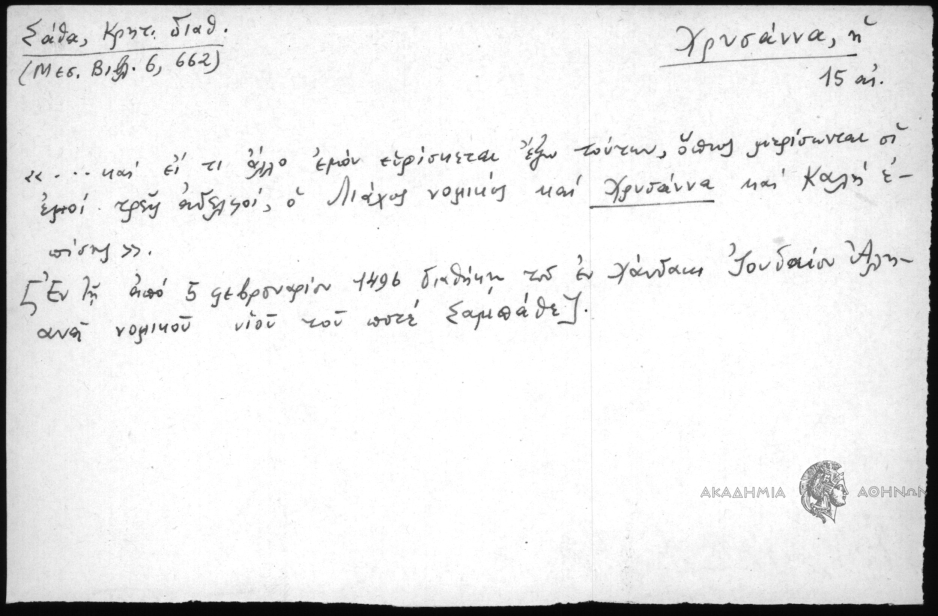 Σάθα, Κρητ. διαθ.
(Μεσ. Βιβλ. 6, 662)
Χρυσάννα, ἡ
15 αἰ.
«... καὶ εἴ τι ἄλλο ἐμὸν εὑρίσκεται ἔξω τούτων, ὅπως μερίσωνται οἱ
ἐμοὶ τρεῖς ἀδελφοί, ὁ Λιάχος νομικός καὶ Χρυσάννα καὶ Καλὴ ἐ-
πίσης».
[Ἐν τῇ ἀπὸ 5 φεβρουαρίου 1496 διαθήκῃ τοῦ ἐν Χάνδακι Ἰουδαίου Ἀλκα-
ανᾶ νομικοῦ υἱοῦ τοῦ ποτέ Σαμπάθε].
ΑΚΑΔΗΜΙΑ ΑΘΗΝΩΝ